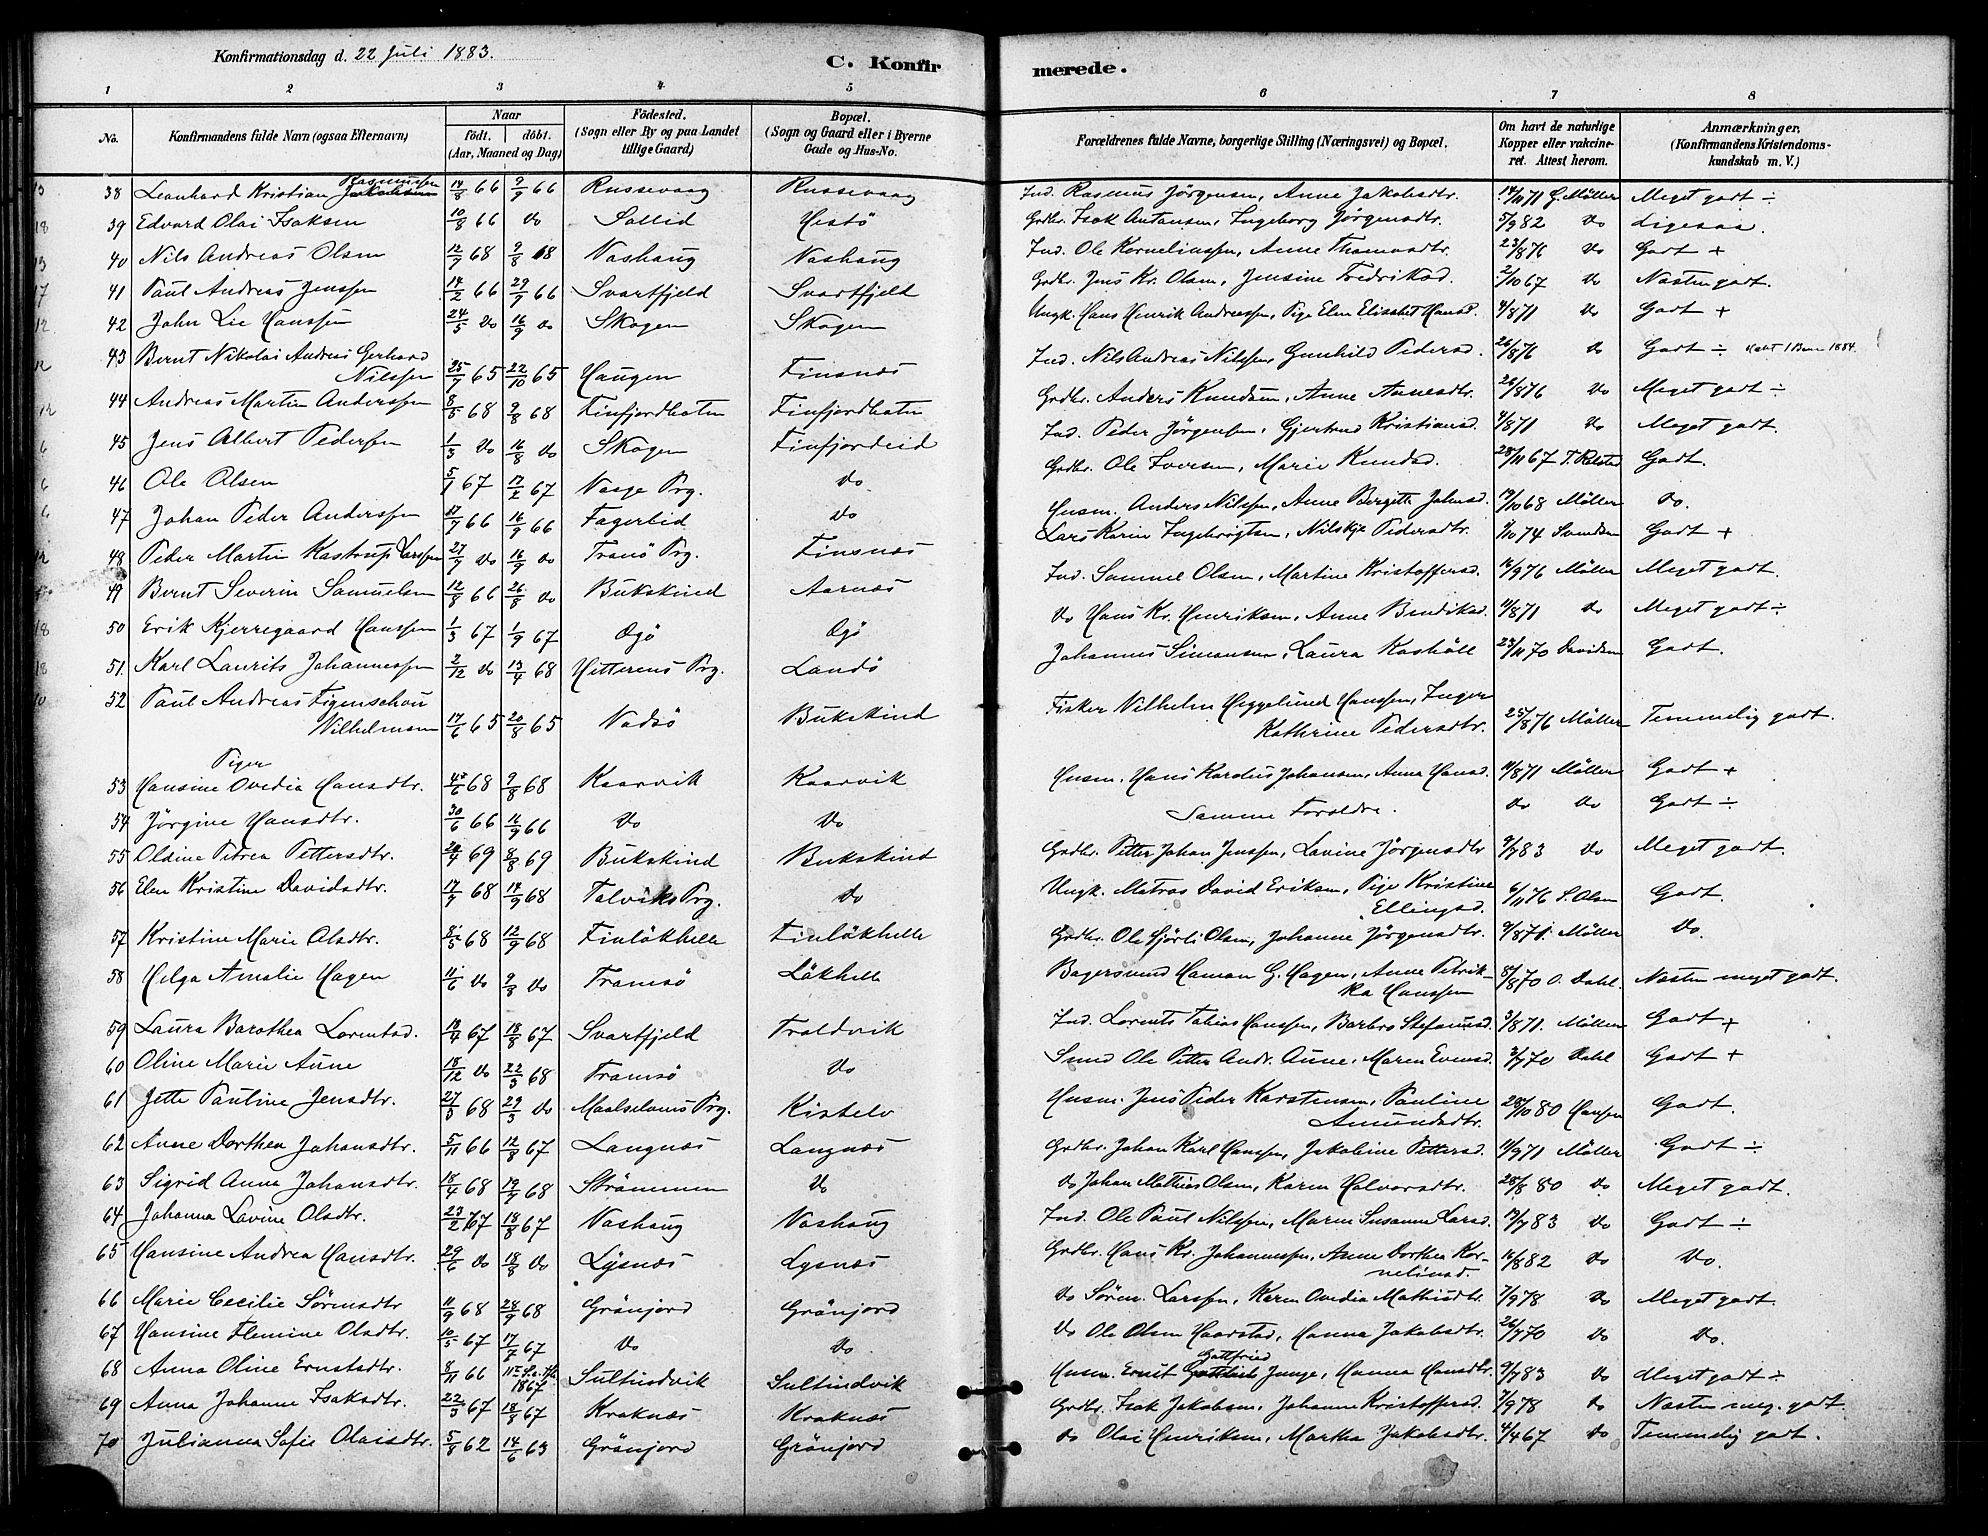 Konfirmationsdag d. 22 Juli 1883.
C. Konfir
merede.
1 2 3 4 5 6 7 8
No. Konfirmandens fulde Navn (ogsaa Efternavn) Naar födt. döbt. (Aar, Maaned og Dag) Födested. (Sogn eller By og paa Landet tillige Gaard) Bopæl. (Sogn og Gaard eller i Byerne Gade og Hus-No. Forældrenes fulde Navne, borgerlige Stilling (Næringsvei) og Bopæl. Om havt de naturlige Kopper eller vakcineret. Attest herom. Anmærkninger. (Konfirmandens Kristendomskundskab m. V.)
38 Leonhard Kristian Rasmussen 14/8 66 9/9 66 Russevaag Russevaag Ind. Rasmus Jörgensen, Anne Jakobsdtr. G. Möller Meget godt ÷
39 Edvard Olai Isaksen 10/8 66 do Sollid Hestö Grdbr. Isak Antonsen, Ingeborg Jörgensdtr. 5/9 82 do Ligesaa.
40 Nils Andreas Olsen 12/7 68 9/8 68 Vashaug Vashaug Ind. Ole Korneliussen, Anne Thomasdtr. 23/8 76 do Godt +
41 Paul Andreas Jenssen 14/2 66 29/7 66 Svartfjeld Svartfjeld Grdbr. Jens Kr. Olsen, Jensine Fredriksd. 2/10 67 do Næsten godt.
42 John Lie Hanssen 24/5 do 16/9 do Skogen Skogen Ungk. Hans Henrik Andreassen, Pige Elen Elisabet Hansd. 4/8 71 do Godt +
43 Bernt Nikolai Andreas Gerhard Nilssen 25/7 65 22/10 65 Haugen Finsnæs Ind. Nils Andreas Nilssen, Gunhild Pedersd. 26/8 76 do Godt ÷
44 Andreas Martin Anderssen 8/5 68 9/8 68 Finfjordbotn Finfjordbotn Grdbr. Anders Knudsen, Anne Arnesdtr. 26/8 76 do Meget godt ÷
45 Jens Albert Pedersen 1/3 do 16/8 do Skogen Finfjordeid Ind. Peder Jörgensen, Gjertrud Kristiansd. 4/8 71 do Meget godt.
46 Ole Olsen 5/1 67 17/2 67 Vaage Prg. do Grdbr. Ole Iversen, Marie Knudsd. 28/11 67 Godt.
47 Johan Peder Anderssen 27/7 66 16/9 66 Fagerlid do Husm. Anders Nilssen, Anne Bergitte Johnsd. 19/10 68 Möller do.
48 Peder Martin Kastrup Larssen 27/7 do 16/9 do Tranö Prg. Finsnæs Lars Karin Ingebrigtsen, Nilskje Pedersdtr. 7/10 74 Svendsen Godt +
49 Bernt Severin Samuelsen 12/8 66 26/8 do Bukskind Aarnæs Ind. Samuel Olsen, Martine Kristoffersd. 16/9 76 Möller Meget godt.
50 Erik Kjerregaard Hanssen 1/3 67 1/9 67 Ogö Ogö do Hans Kr. Henriksen, Anne Bendiksd. 11/8 71 do Meget godt ÷
51 Karl Laurits Johannessen 2/12 do 13/4 68 Hitterens Prg. Landö Johannes Simonsen, Laura Kashöll 23/11 70 Davidsen Godt.
52 Paul Andreas Figenschou Wilhelmsen 17/6 65 20/8 65 Vadsö Bukskind Fisker Vilhelm Heggelund Hanssen, Inger Kathrine Pedersdtr. 25/8 76 Möller Temmelig godt.
Piger
53 Hansine Ovedia Hansdtr. 68 9/8 68 Kaarvik Kaarvik Husm. Hans Kardius Johansen, Anna Hansd. 11/8 71 Möller Godt +
54 Jörgine Hansdtr. 30/6 66 11/9 66 do do Samme Forældre. do do Godt ÷
55 Olsine Petrea Pettersdtr. 69 8/8 69 Bukskind Bukskind Grdbr. Petter Johan Jenssen, Lavine Jörgensdtr 9/7 83 do Meget godt.
56 Elen Kristine Davidsdtr. 17/7 68 14/9 68 Talviks Prg. do Ungk. Matros David Eriksen, Pige Kristine Ellingsd. 6/11 76 S. Olsen Godt.
57 Kristine Marie Olsdtr. 68 12/9 68 Finlökhelle Finlökhelle Grdbr. Ole Hjörli Olsen, Johanne Jörgensdtr. 9/8 71. Möller do.
58 Helga Amalie Hagen 11/6 do 9/8 do Tromsö Lökhelle Bagersvend Haman G. Hagen, Anne Petrikka Hanssen 8/8 70 O. Dahl. Næsten meget godt.
59 Laura Barothea Lorentsd. 67 18/8 67 Svartfjeld Troldvik Ind. Lorents Tobias Hanssen, Barbro Stefansd. 3/8 71. Möller Godt +
60 Oline Marie Aune 18/12 do 22/3 68 Tromsö do Smed Ole Petter Andr. Aune, Maren Evensd. 3/7 70 Dahl Godt +
61 Jette Pauline Jensdtr. 27/3 68 29/3 do Maalselvens Prg. Kistelv Husm. Jens Peder Karstensen, Pauline Amundsdtr. 28/10 80 Hansen Godt.
62 Anne Dorthea Johansdtr. 5/11 66 12/8 67 Langnæs Langnæs Grdbr. Johan Karl Hanssen, Jakobine Pettersd. 11/9 71 Möller Godt ÷
63 Sigrid Anna Johansdtr. 18/4 68 19/7 68 Strömmen do do Johan Mathias Olsen, Karen Halvorsdtr. 28/8 80 do Meget godt.
64 Johanna Lavine Olsdtr. 23/2 67 18/8 67 Vashaug Vashaug Ind. Ole Paul Nilssen, Maren Susanne Larsd. 19/7 83 do Godt ÷
65 Hansine Andrea Hansdtr. 29/6 do 18/8 do Lysnæs Lysnæs Grdbr. Hans Kr. Johannessen, Anne Dorthea Kornelinsd. 16/8 82 do do.
66 Marie Cecilie Sörensdtr 11/9 68 28/9 68 Grönjord Grönjord do Sören Larssen, Karen Ovedia Mathisdtr. 7/9 78 do Meget godt.
67 Hansine Flemine Olsdtr. 10/5 67 17/7 67 do do do Ole Olsen Haarstad, Hanna Jakobsdtr. 26/7 70 do do.
68 Anna Oline Ernstsdtr. 8/11 66 1867 Sultindvik Sultindvik Husm. Ernst Gottfried Junge, Hanna Hansdtr. 9/7 83 do Meget godt ÷
69 Anna Johanne Isaksdtr. 22/3 67 18/8 67 Kraknæs Kraknæs Grdbr. Isak Jakobsen, Johanne Kristoffersd. 7/9 78 do Næsten meg. godt.
70 Julianna Sofie Olaisdtr. 5/8 62 14/6 63 Grönjord Grönjord do Olai Henriksen, Martha Jakobsdtr. 4/4 67 do Temmelig godt.